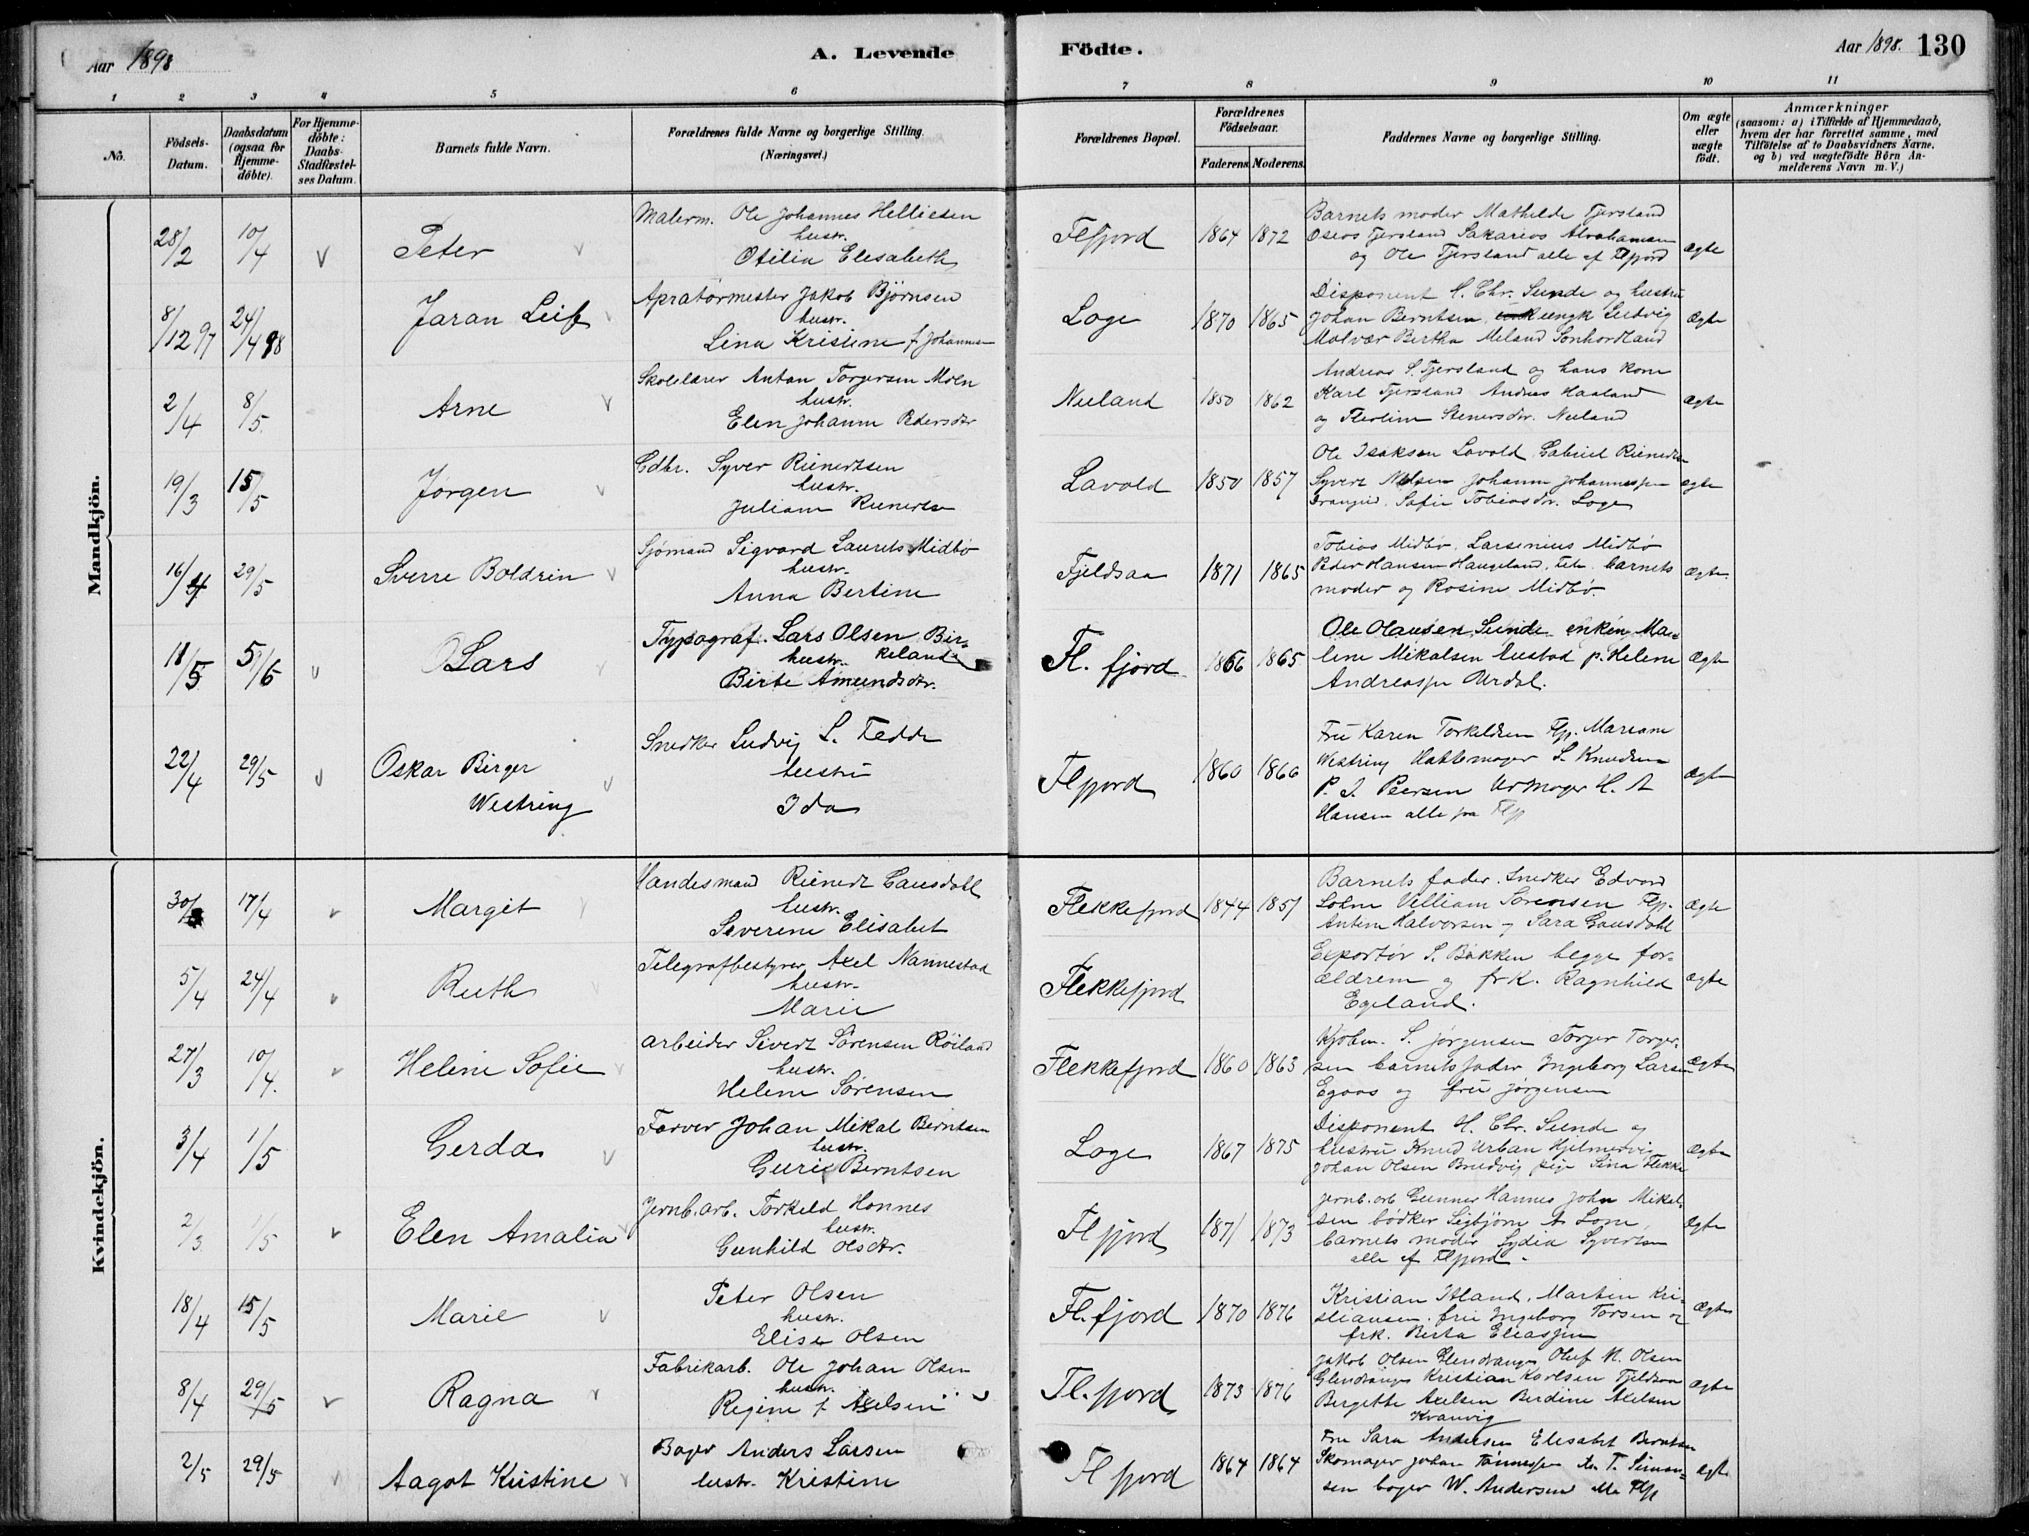 Aar 1898
A. Levende
Födte.
Aar 1898. 130
1 2 3 4 5 6 7 8 9 10 11
No.
Födsels-Datum.
Daabsdatum (ogsaa for Hjemmedøbte).
For Hjemmedöbte: Daabs-Stadfæstelses Datum.
Barnets fulde Navn.
Forældrenes fulde Navne og borgerlige Stilling. (Næringsvei.)
Forældrenes Bopæl.
Forældrenes Födselsaar.
Faderens. Moderens.
Faddernes Navne og borgerlige Stilling.
Om ægte eller uægte födt.
Anmærkninger
(saasom: a) i Tilfælde af Hjemmedaab, hvem der har forrettet samme, med Tilföielse af to Daabsvidners Navne, og b) ved uægtefödte Börn Anmelderens Navn m. V.)
Mandkjön.
28/2 10/4 v Peter
Malerm. Ole Johannes Helliesen
hustr.
Otilia Elisabeth
Flfjord 1864 1872
Barnets moder Mathilde Tjersland
Oseas Tjersland Sakarias Abrahamsen
og Ole Tjersland alle af Flfjord
ægte
8/12 97 24/4 98 Jaran Leif
Apratørmester Jakob Bjørnsen
hustr.
Lina Kristine f Johannes
Loge 1870 1865
Disponent H. Chr. Sunde og hustru
Johan Berntsen, ungk Ludvig
Malvær Bertha Meland Sønhordland
Ægte
2/4 8/5 Arne
Skolelærer Anton Torgersen Moen
hustr.
Elen Johanne Pedersdtr
Nuland 1850 1862
Andreas S. Tjersland og hans kone
Karl Tjersland Andreas Haaland
og Stenersdtr. Nuland
Ægte
19/3 15/5 Jørgen
Gdbr. Syver Rienertsen
hustr.
Juliane Rienertsen
Lavold 1850 1857
Ole Isaksen Lavold Gabriel Rienertsen
Syvert Nilsen Johanne Johannessen
Sofie Tobiasdtr. Loge
ægte
16/4 29/5 Sverre Boldrin
Sjømand Sigvard Laurits Midbø
hustr.
Anna Bertine
Fjeldsaa 1871 1865
Tobias Midbø. Larsenius Midbø
Peder Hansen Haugeland, barnets
moder og Rosine Midbø.
Ægte
18/5 5/6 v Lars
Typograf. Lars Olsen Bir-
hustr. keland
Birte Amundsdtr.
Fl. fjord 1866 1865
Ole Olausen Sunde enken Ma-
lene Mikalsen p. Helene
Andreassen Urdal.
Ægte
22/4 29/5 v Oskar Birger
Westring
Snedker Ludvig L. Fedde
hustru
Ida
Flfjord 1860 1866
Fru Karen Torkeldsen Flfj. Mariane
Westring Hattemager S. Knudsen
P. S. Peersen Urmager H. A
Hansen alle fra Flfj
ægte
Kvindekjön.
30/3 17/4 v Margit
Handesmand Rienert Gausdahl
hustr.
Severine Elisabet
Flekkefjord 1844 1851
Barnets fader. Snedker Edvard
Lohne Villiam Sørensen Flfj.
Antine Halvorsen og Sara Gausdahl
Ægte
5/4 24/4 v Ruth
Telegrafbestyrer Axel Nannestad
hustr.
Marie
Flekkefjord
Exportør S. Bakken begge for-
ældrene og frk. Ragnhild
Egeland.
Ægte
27/3 10/4. v Helene Sofie
Arbeider Sivert Sørensen Røiland
hustr.
Helene Sørensen
Flekkefjord 1860 1863
Kjøbm. S. Jørgensen Torger Torger-
sen barnets fader Ingeborg Larsen
Egaas og fru Jørgensen
Ægte
3/4 1/5 Gerda
Farver Johan Mikal Berntsen
hustr.
Gurie Berntsen
Loge 1867 1875
Disponent H. Chr. Sunde og
hustru Knud Urban Hjelmervig
Johan Olsen Bredvig pige Sina Flekke
Ægte
2/3 1/5 v Elen Amalia
Jernb.arb. Torkeld Honnes
hustr.
Gunhild Olsdtr.
Flfjord 1871 1873
jernb.arb Gunner Hannes John Mikal-
sen bødker Sigbjørn A. Lone,
barnets moder Lydia Syvertsen
alle af Flfjord -
Ægte
18/4 15/5 Marie
Peter Olsen
hustr.
Elise Olsen
Fl.fjord 1870 1876
Kristian Itland, Martin Kri-
stiansen, fru Ingeborg Torsen og
frk. Berta Eliassen
Ægte
8/4 29/5 v Ragna
Fabrikarb. Ole Johan Olsen
hustr.
Regine f Axelsen
Fl.fjord 1873 1876
Jakob Olsen Glendrange Oluf M. Olsen
Glendrange Kristian Karlsen Fjeldsaa
Bergette Axelsen Berdine Axelsen
Kvanvig
Ægte
2/5 29/5 Aagot Kristine
Bager Anders Larsen
hustr. Kristine
Flfjord 1864 1864
Fru Sara Andersen Elisabet Berntsen
Skomager Johan Tønnessen T. Simon-
sen bager W. Andersen alle Flfj
Ægte